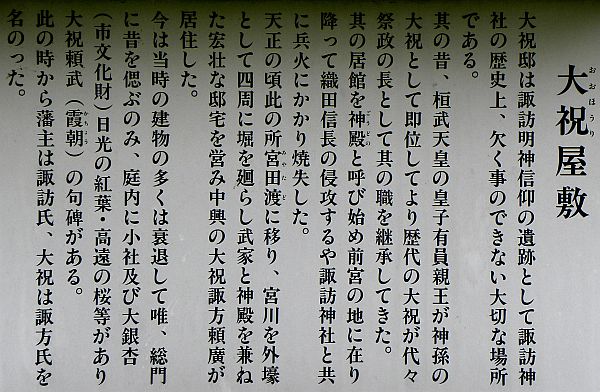 おおほうり
大祝屋敷
大祝邸は諏訪明神信仰の遺跡として諏訪神
社の歴史上、欠く事のできない大切な場所
である。
其の昔、桓武天皇の皇子有員親王が神孫の
大祝として即位してより歴代の大祝が代々
祭政の長として其の職を継承してきた。
其の居館を神殿と呼び始め前宮の地に在り
ごうどの
降って織田信長の侵攻するや諏訪神社と共
に兵火にかかり焼失した。
天正の頃此の所宮田渡に移り、宮川を外壕
みやたど
として四周に堀を廻らし武家と神殿を兼ね
た宏壮な邸宅を営み中興の大祝諏方頼廣が
居住した。
今は当時の建物の多くは衰退して唯、総門
に昔を偲ぶのみ、庭内に小社及び大銀杏
（市文化財）日光の紅葉・高遠の桜等があり
大祝頼武（霞朝）の句碑がある。
かちょう
此の時から藩主は諏訪氏、大祝は諏方氏を
名のった。